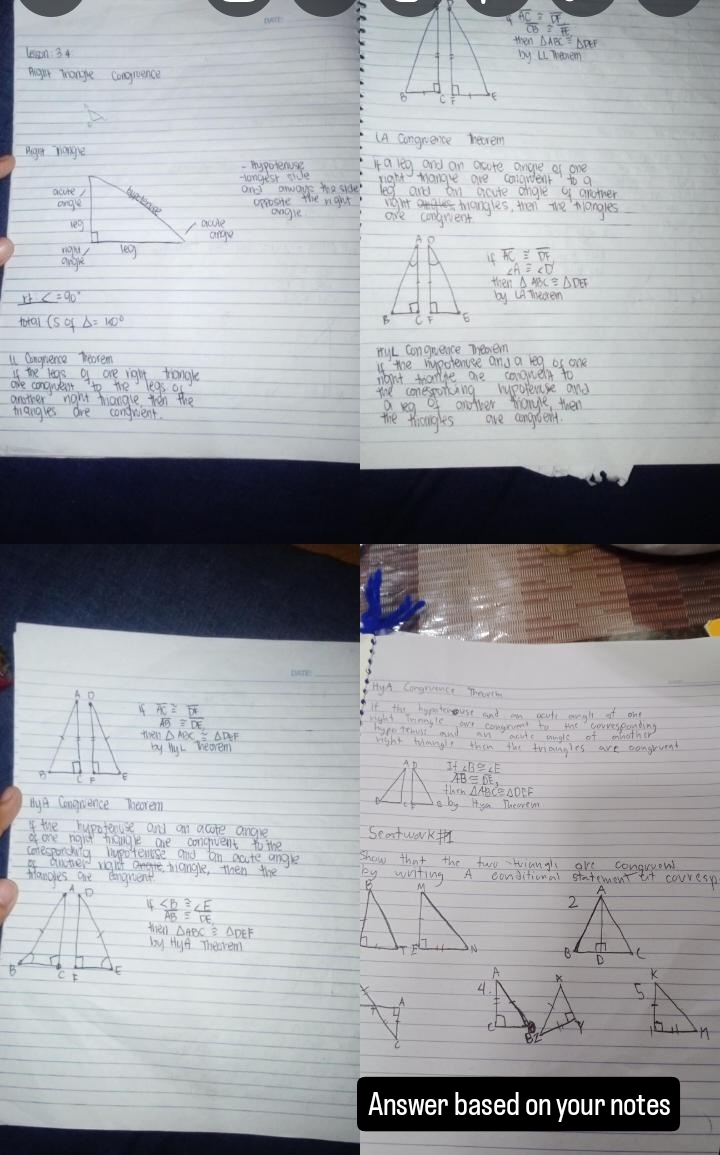 DATE:
Lesson: 3.4
Right Triangle Congruence
Right Triangle
- Hypotenuse
- longest side
and always the side
opposite the right
angle
acute
angle
hypotenuse
leg
acute
angle
right
angle
leg
rt. < = 90°
total
of Δ = 180°
LL Congruence Theorem
if the legs of one right triangle
are congruent to the legs of
another right triangle, then the
triangles are congruent.
if AC ≅ DF
CB ≅ FE
then ΔABC ≅ ΔDEF
by LL Theorem
B C F E
LA Congruence Theorem
if a leg and an acute angle of one
right triangle are congruent to a
leg and an acute angle of another
right angles triangles, then the triangles
are congruent
A D
if AC ≅ DF
∠A ≅ ∠D
then Δ ABC ≅ ΔDEF
by LA Theorem
B C F E
HyL Congruence Theorem
if the hypotenuse and a leg of one
right triangle are congruent to
the corresponding hypotenuse and
a leg of another triangle, then
the triangles are congruent.
DATE:
A D
if AC ≅ DF
AB ≅ DE,
then Δ ABC ≅ ΔDEF
by HyL Theorem
B C F E
HyA Congruence Theorem
if the hypotenuse and an acute angle
of one right triangle are congruent to the
corresponding hypotenuse and an acute angle
of another right angle, triangle, then the
triangles are congruent.
A D
if <B ≅ ∠E
AB ≅ DE,
then ΔABC ≅ ΔDEF
by HyA Theorem
B C F E
HyA Congruence Theorem
If the hypotenuse and an acute angle of one
right Triangle are congruent to the corresponding
hypotenuse and an acute angle of another
right triangle then the triangles are congruent
A D
If ∠B ≅ ∠E
AB ≅ DE,
then ΔABC ≅ ΔDEF
by Hya Theorem
Seatwork #1
Show that the two triangls are congruent
by writing A conditional statement
B M
T E N
2
A
B D C
A
C
4.
A X
C B Z Y
5.
K
M
Answer based on your notes